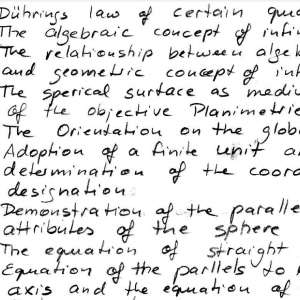 Dührings law of certain
The algebraic concept of
The relationship between
and geometric concept of
The sperical surface as
of the objective Planimetrie
The Orientation on the
Adoption of a finite unit
determination of the
designation.
Demonstration of the
attributes of the sphere
The equation of straight
Equation of the parllels to
axis and the equation of